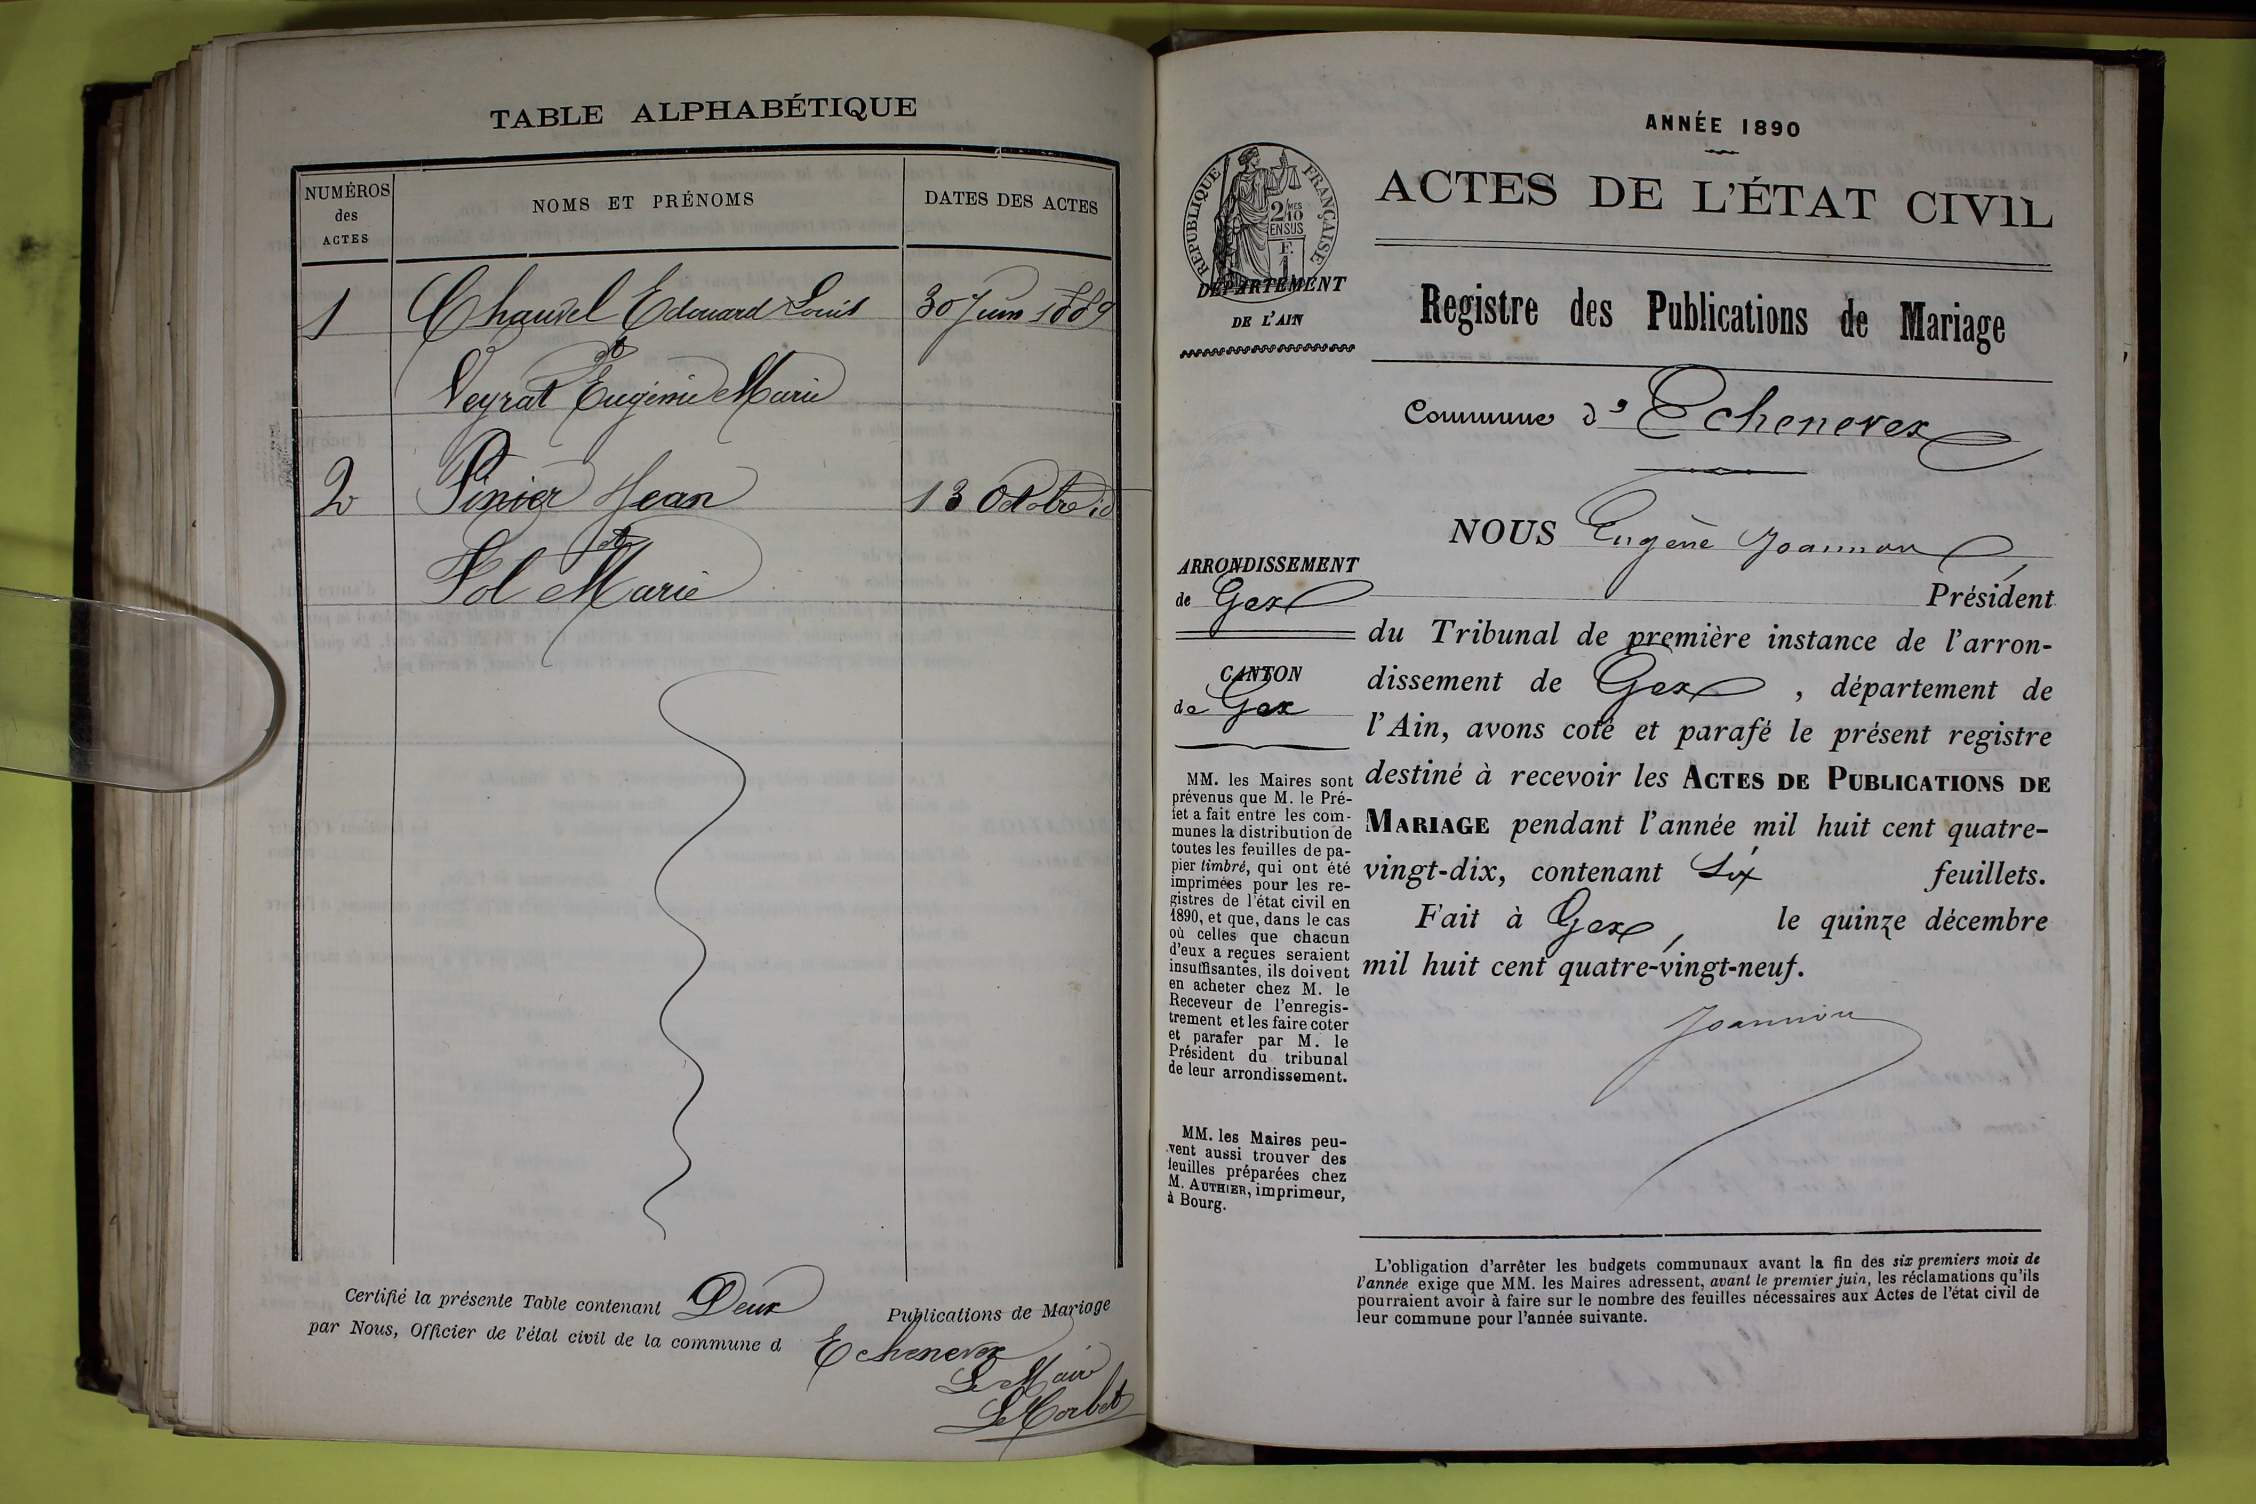 TABLE ALPHABÉTIQUE
NUMÉROS
des
ACTES
NOMS ET PRÉNOMS
DATES DES ACTES
1
Chauvel Edouard Louis
30 Juin 1889
et
Veyrat Eugénie Marie
2
Pinier Jean
13 Octobre id
et
Fol Marie
Certifié la présente Table contenant Deux Publications de Mariage
par Nous, Officier de l'état civil de la commune d Echenevex
Le Maire
ANNÉE 1890
ACTES DE L'ÉTAT CIVIL
RÉPUBLIQUE FRANÇAISE
2/10
MES
EN SUS
F
1
DÉPARTEMENT
DE L'AIN
Registre des Publications de Mariage
Commune d' Echenevex
ARRONDISSEMENT
de Gex
CANTON
de Gex
MM. les Maires sont
prévenus que M. le Pré-
fet a fait entre les com-
munes la distribution de
toutes les feuilles de pa-
pier timbré, qui ont été
imprimées pour les re-
gistres de l'état civil en
1890, et que, dans le cas
où celles que chacun
d'eux a reçues seraient
insuffisantes, ils doivent
en acheter chez M. le
Receveur de l'enregis-
trement et les faire coter
et parafer par M. le
Président du tribunal
de leur arrondissement.
MM. les Maires peu-
vent aussi trouver des
feuilles préparées chez
M. AUTHIER, imprimeur,
à Bourg.
NOUS Eugène Joannon
Président
du Tribunal de première instance de l'arron-
dissement de Gex , département de
l'Ain, avons coté et parafé le présent registre
destiné à recevoir les ACTES DE PUBLICATIONS DE
MARIAGE pendant l'année mil huit cent quatre-
vingt-dix, contenant Six feuillets.
Fait à Gex, le quinze décembre
mil huit cent quatre-vingt-neuf.
Joannon
L'obligation d'arrêter les budgets communaux avant la fin des six premiers mois de
l'année exige que MM. les Maires adressent, avant le premier juin, les réclamations qu'ils
pourraient avoir à faire sur le nombre des feuilles nécessaires aux Actes de l'état civil de
leur commune pour l'année suivante.